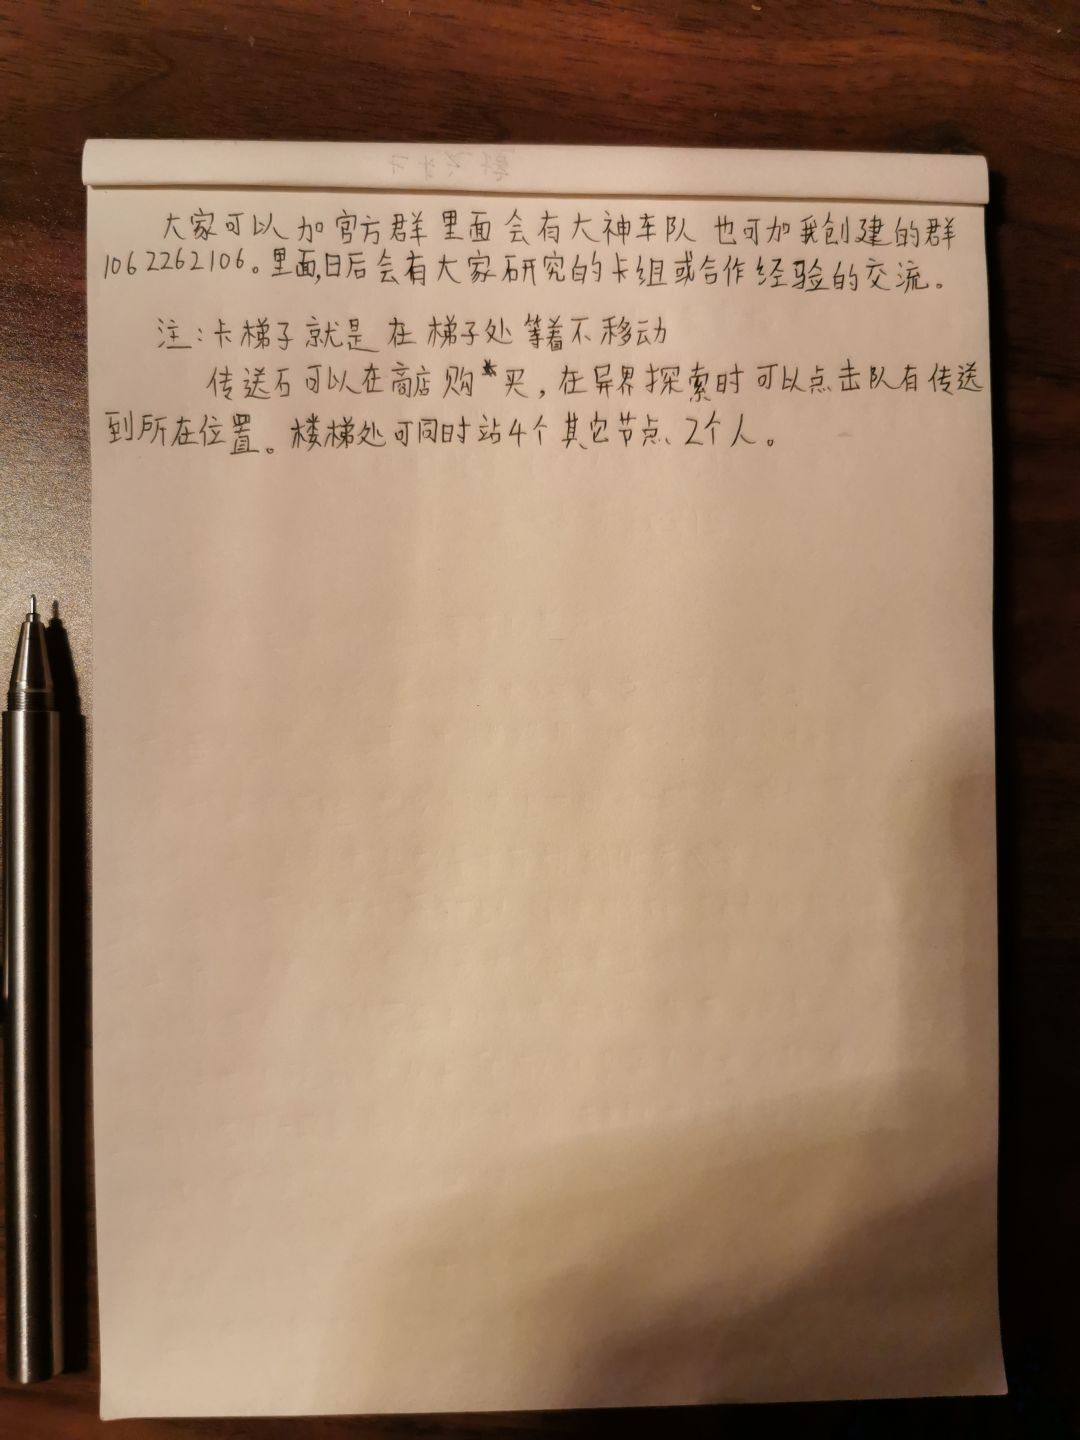 大家可以加官方群里面会有大神车队 也可加我创建的群
1062262106。里面,日后会有大家研究的卡组或合作经验的交流。
注:卡梯子就是在梯子处等着不移动
传送石可以在商店购买,在异界探索时可以点击队友传送
到所在位置。楼梯处可同时站4个其它节点、2个人。